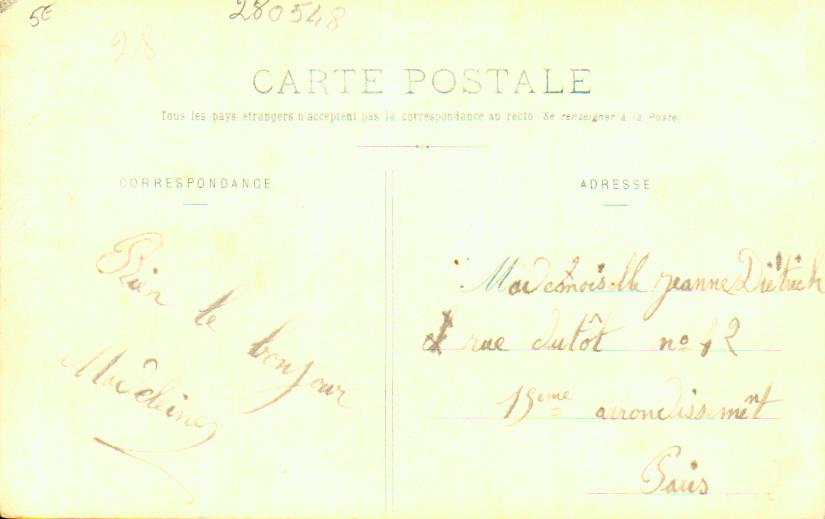 5E
280548
28
CARTE POSTALE
Tous les pays étrangers n'acceptent pas la correspondance au recto. Se renseigner à la Poste.
CORRESPONDANCE
Bien le bonjour
Madeleine
ADRESSE
Mademoiselle Jeanne Diétrich
rue dutôt no 42
15eme arrondissement
Paris